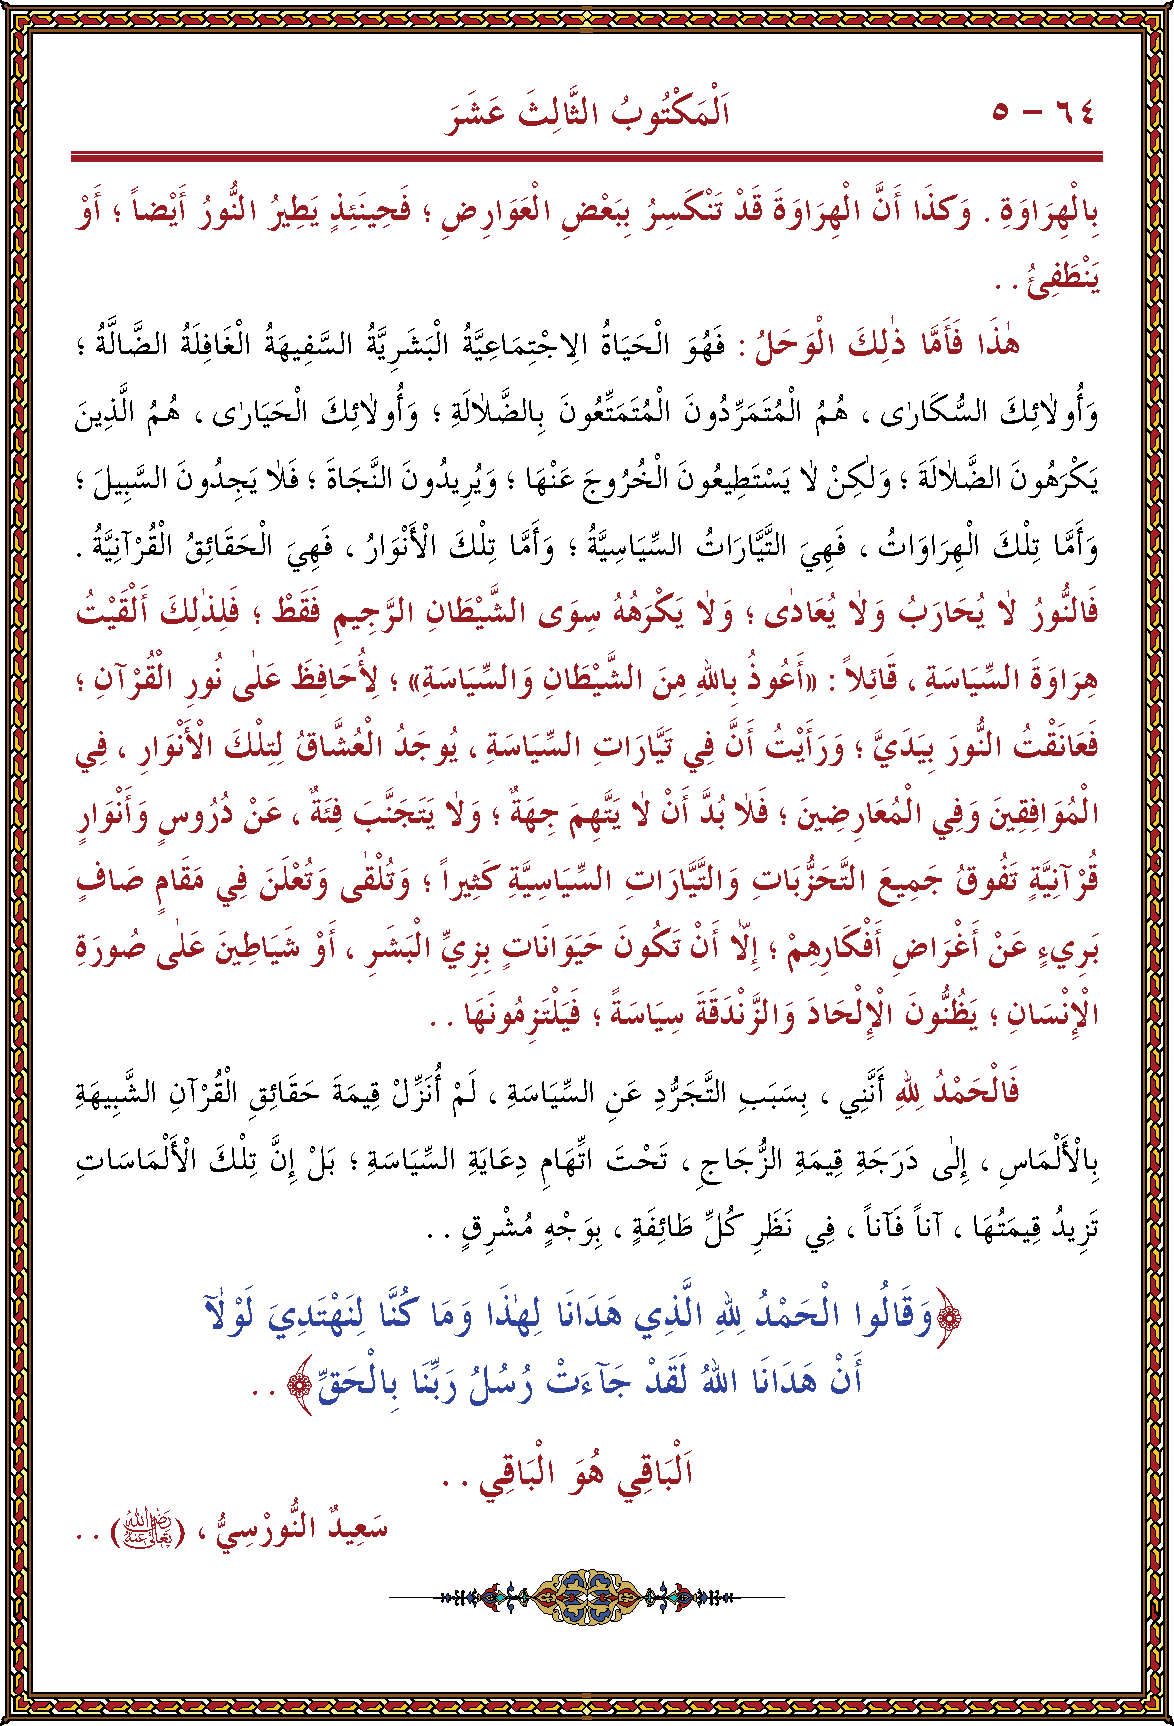 ٦٤ - ٥
اَلْمَكْتُوبُ الثَّالِثَ عَشَرَ
بِالْهِرَاوَةِ . وَكذَا أَنَّ الْهِرَاوَةَ قَدْ تَنْكَسِرُ بِبَعْضِ الْعَوَارِضِ ؛ فَحِينَئِذٍ يَطِيرُ النُّورُ أَيْضاً ؛ أَوْ
يَنْطَفِئُ . .
هٰذَا فَأَمَّا ذٰلِكَ الْوَحَلُ : فَهُوَ الْحَيَاةُ الاِجْتِمَاعِيَّةُ الْبَشَرِيَّةُ السَّفِيهَةُ الْغَافِلَةُ الضَّالَّةُ ؛
وَأُولاٰئِكَ السُّكَارٰى ، هُمُ الْمُتَمَرِّدُونَ الْمُتَمَتِّعُونَ بِالضَّلاٰلَةِ ؛ وَأُولاٰئِكَ الْحَيَارٰى ، هُمُ الَّذِينَ
يَكْرَهُونَ الضَّلاٰلَةَ ؛ وَلٰكِنْ لاٰ يَسْتَطِيعُونَ الْخُرُوجَ عَنْهَا ؛ وَيُرِيدُونَ النَّجَاةَ ؛ فَلاٰ يَجِدُونَ السَّبِيلَ ؛
وَأَمَّا تِلْكَ الْهِرَاوَاتُ ، فَهِيَ التَّيَّارَاتُ السِّيَاسِيَّةُ ؛ وَأَمَّا تِلْكَ الْأَنْوَارُ ، فَهِيَ الْحَقَائِقُ الْقُرْآنِيَّةُ .
فَالنُّورُ لاٰ يُحَارَبُ وَلاٰ يُعَادٰى ؛ وَلاٰ يَكْرَهُهُ سِوَى الشَّيْطَانِ الرَّجِيمِ فَقَطْ ؛ فَلِذٰلِكَ أَلْقَيْتُ
هِرَاوَةَ السِّيَاسَةِ ، قَائِلاً : «أَعُوذُ بِاللهِ مِنَ الشَّيْطَانِ وَالسِّيَاسَةِ» ؛ لِأُحَافِظَ عَلٰى نُورِ الْقُرْآنِ ؛
فَعَانَقْتُ النُّورَ بِيَدَيَّ ؛ وَرَأَيْتُ أَنَّ فِي تَيَّارَاتِ السِّيَاسَةِ ، يُوجَدُ الْعُشَّاقُ لِتِلْكَ الْأَنْوَارِ ، فِي
الْمُوَافِقِينَ وَفِي الْمُعَارِضِينَ ؛ فَلاٰ بُدَّ أَنْ لاٰ يَتَّهِمَ جِهَةٌ ؛ وَلاٰ يَتَجَنَّبَ فِئَةٌ ، عَنْ دُرُوسٍ وَأَنْوَارٍ
قُرْآنِيَّةٍ تَفُوقُ جَمِيعَ التَّحَزُّبَاتِ وَالتَّيَّارَاتِ السِّيَاسِيَّةِ كَثِيراً ؛ وَتُلْقٰى وَتُعْلَنَ فِي مَقَامٍ صَافٍ
بَرِيءٍ عَنْ أَغْرَاضِ أَفْكَارِهِمْ ؛ إِلاّٰ أَنْ تَكُونَ حَيَوَانَاتٍ بِزِيِّ الْبَشَرِ ، أَوْ شَيَاطِينَ عَلٰى صُورَةِ
الْإِنْسَانِ ؛ يَظُنُّونَ الْإِلْحَادَ وَالزَّنْدَقَةَ سِيَاسَةً ؛ فَيَلْتَزِمُونَهَا . .
فَالْحَمْدُ لِلهِ أَنَّنِي ، بِسَبَبِ التَّجَرُّدِ عَنِ السِّيَاسَةِ ، لَمْ أُنَزِّلْ قِيمَةَ حَقَائِقِ الْقُرْآنِ الشَّبِيهَةِ
بِالْأَلْمَاسِ ، إِلٰى دَرَجَةِ قِيمَةِ الزُّجَاجِ ، تَحْتَ اتِّهَامِ دِعَايَةِ السِّيَاسَةِ ؛ بَلْ إِنَّ تِلْكَ الْأَلْمَاسَاتِ
تَزِيدُ قِيمَتُهَا ، آناً فَآناً ، فِي نَظَرِ كُلِّ طَائِفَةٍ ، بِوَجْهٍ مُشْرِقٍ . .
﴿وَقَالُوا الْحَمْدُ لِلهِ الَّذِي هَدَانَا لِهٰذَا وَمَا كُنَّا لِنَهْتَدِيَ لَوْلآٰ
أَنْ هَدَانَا اللهُ لَقَدْ جَآءَتْ رُسُلُ رَبِّنَا بِالْحَقِّ﴾ . .
اَلْبَاقِي هُوَ الْبَاقِي . .
سَعِيدٌ النُّورْسِيُّ ، (رضي الله تعالى عنه) . .